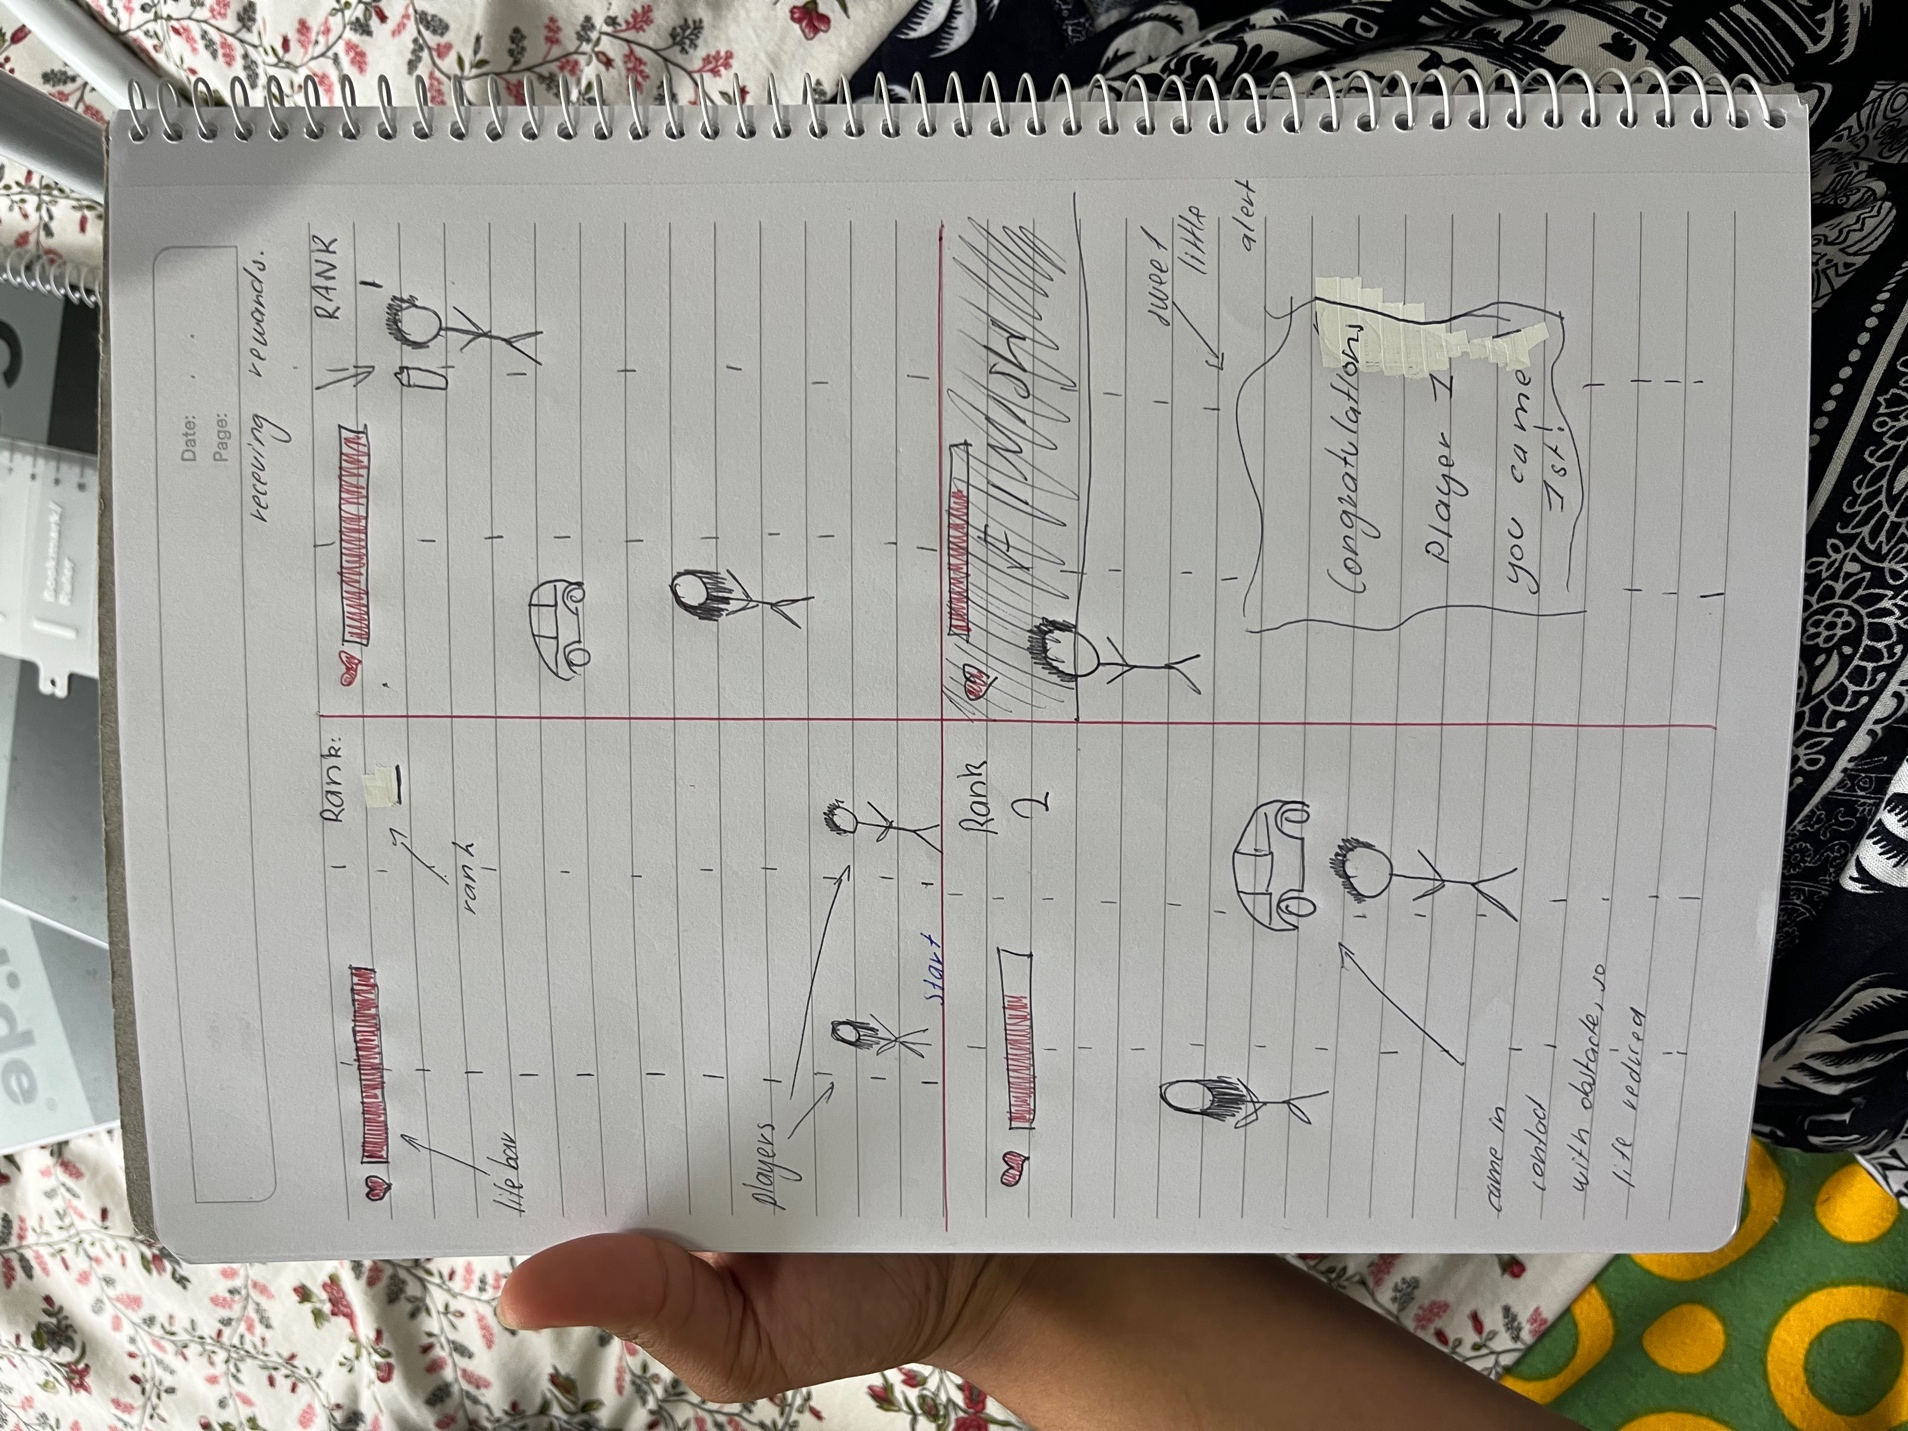 Date:
Page:
receving rewands.
Rank:
rank
life bar
players
start
RANK
1
Rank
2
came in
contact
with obstacle, so
life redired
FINISH
sweet
little
alert
Congratulations
Player 1
you came
1st!
Bookmark/
Ruler
rde